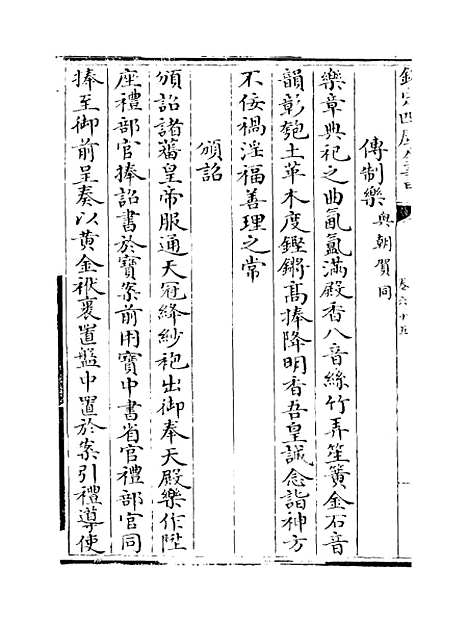 欽定四庫全書
卷六十五
傳制樂與朝賀同
樂章典祀之曲氤氳滿殿香八音絲竹弄笙簧金石音
韻彰匏土革木度鏗鏘高捧降明香吾皇誠念詣神方
不佞禍淫福善理之常
頒詔
頒詔諸蕃皇帝服通天冠絳紗袍出御奉天殿樂作陞
座禮部官捧詔書於寶案前用寶中書省官禮部官同
捧至御前呈奏以黄金袱裹置盤中置於案引禮導使